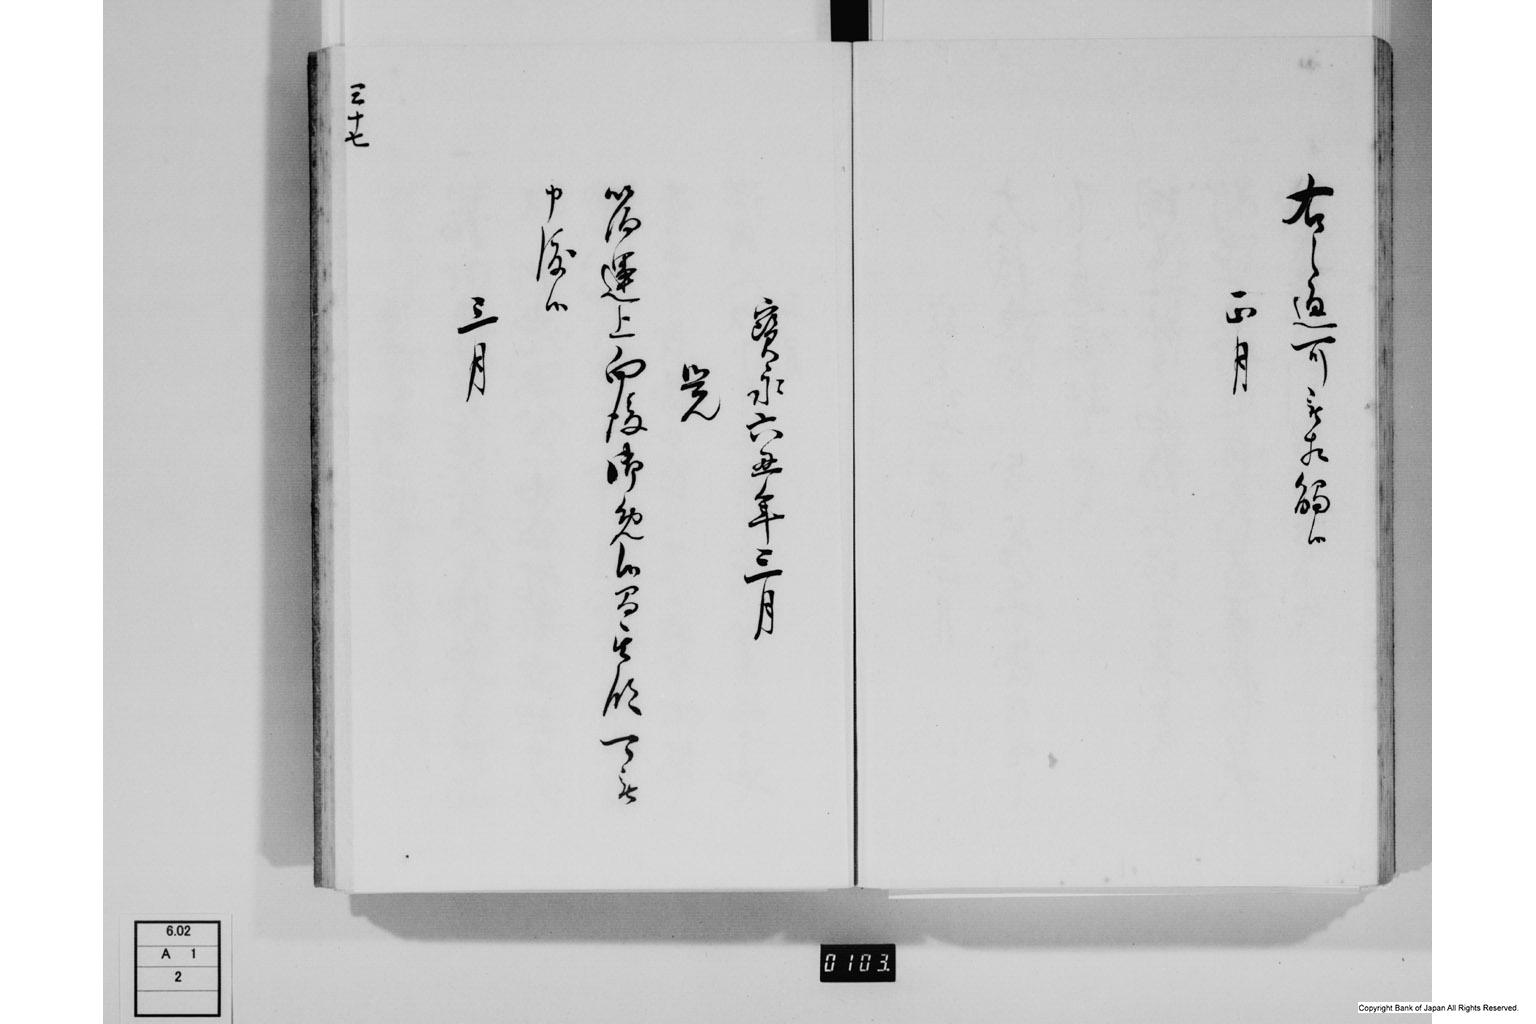 右之通可被相觸候
正月
寶永六丑年三月
覺
箔運上向後御免候間其段可被
申渡候
三月
三十七
6.02
A 1
2
0103.
Copyright Bank of Japan All Rights Reserved.